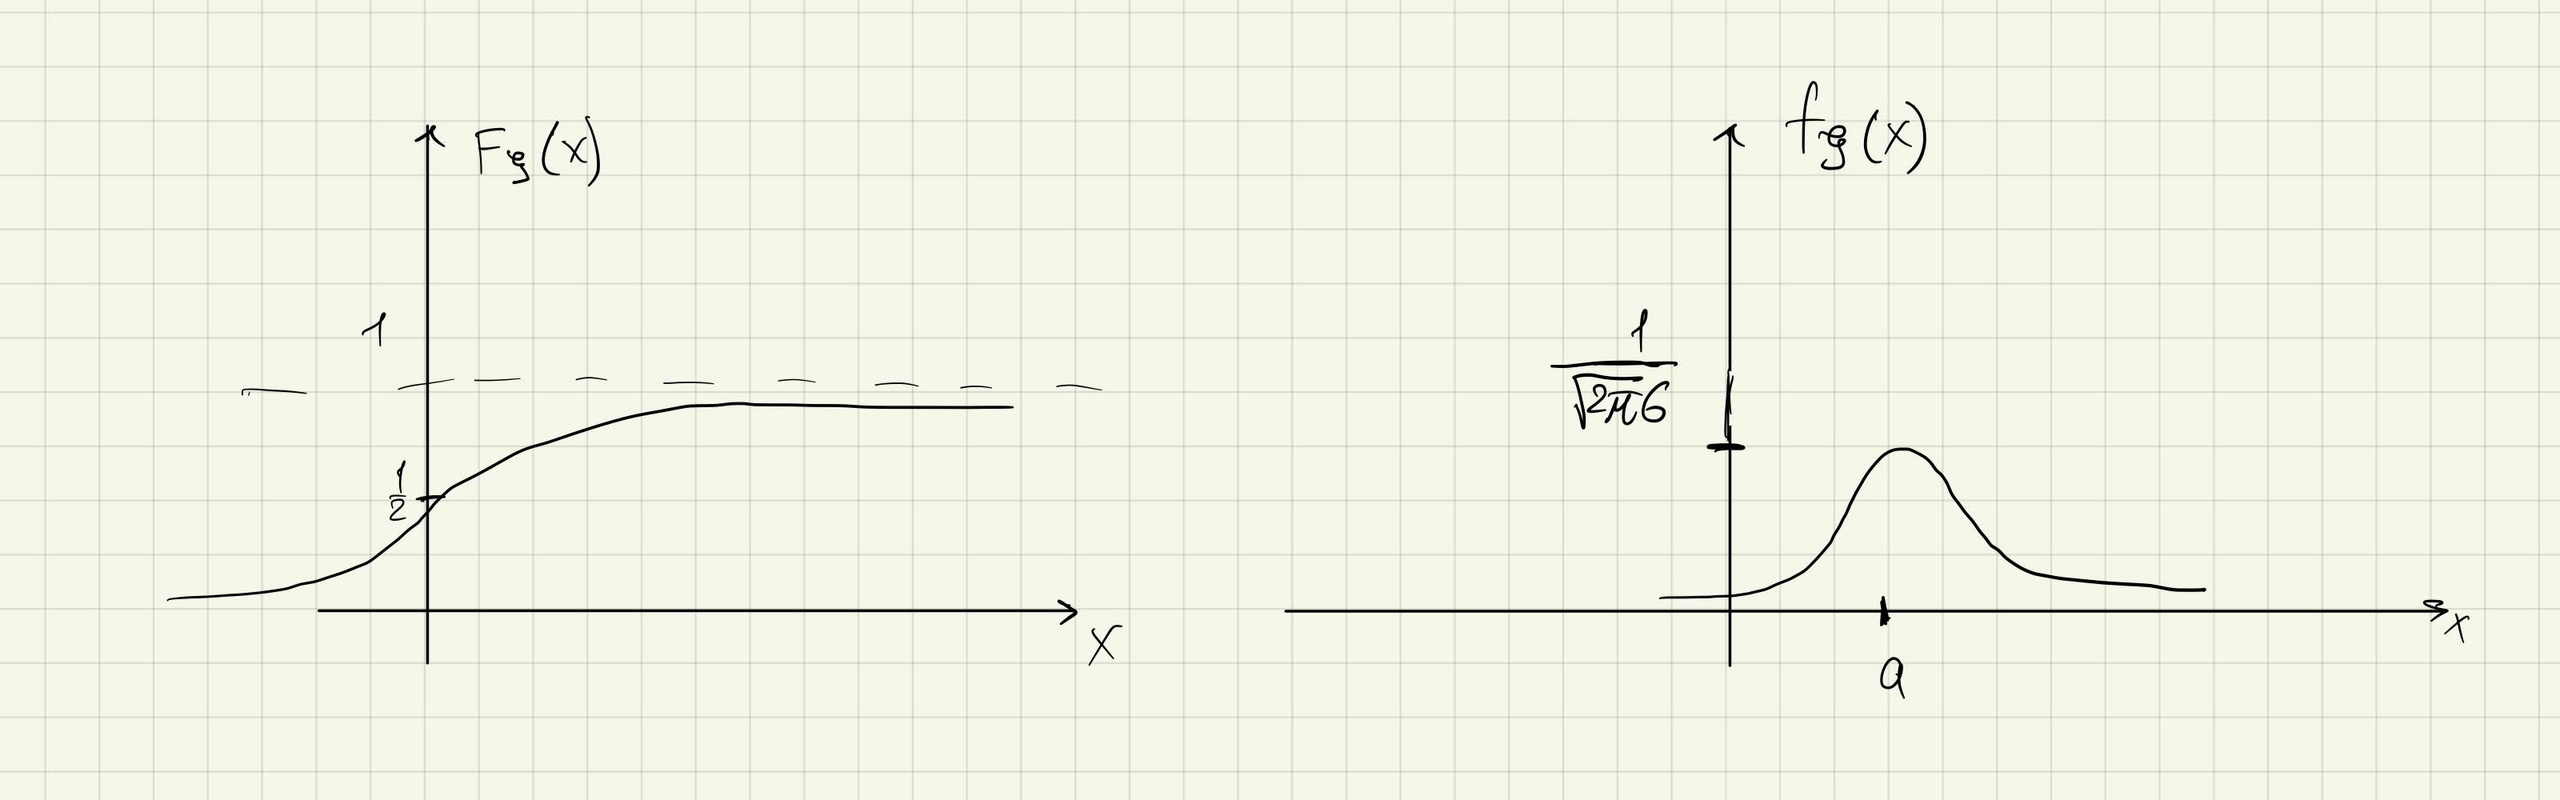 F_ξ(x)
1
1/2
x
f_ξ(x)
1/(√2π σ)
a
x